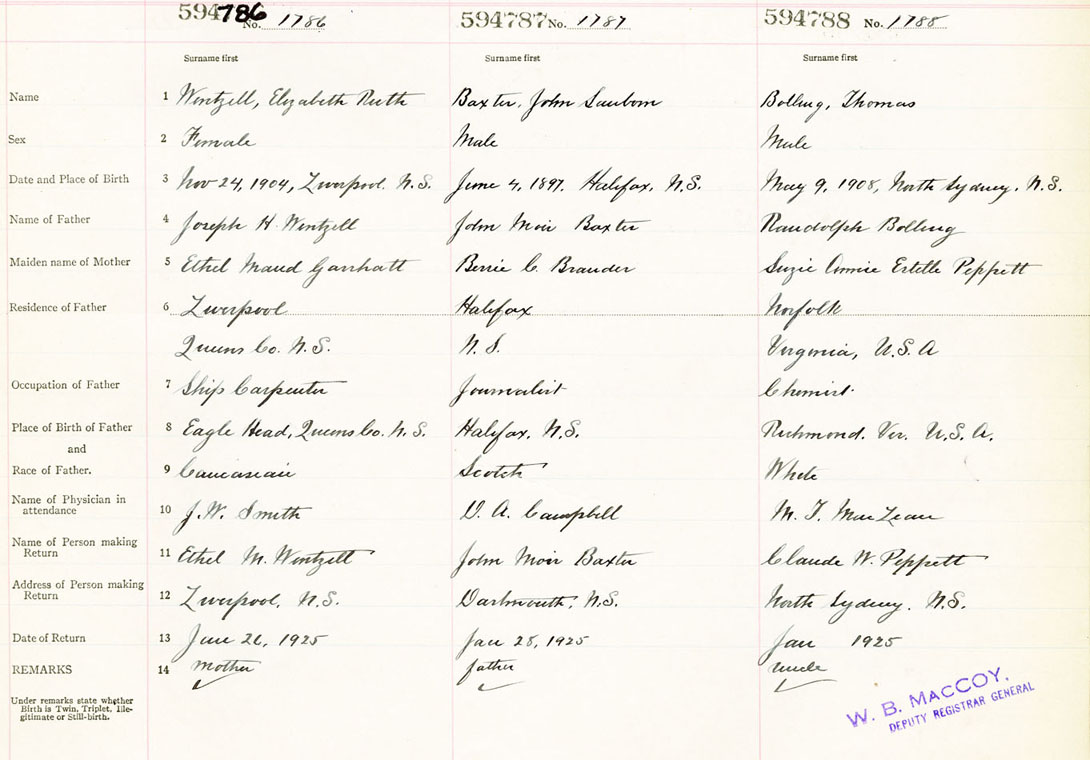 594786 No. 1786 594787 No. 1787 594788 No. 1788
Surname first Surname first Surname first
Name 1 Wentzell, Elizabeth Ruth Baxter, John Sanbom Bolling, Thomas
Sex 2 Female Male Male
Date and Place of Birth 3 Nov 24, 1904, Liverpool. N.S. June 4, 1897, Halifax, N.S. May 9, 1908, North Sydney, N.S.
Name of Father 4 Joseph H. Wentzell John Moir Baxter Randolph Bolling
Maiden name of Mother 5 Ethel Maud C. Brander Suzie Annie Estelle Peppett
Residence of Father 6 Liverpool Halifax Norfolk
Queens Co. N.S. N.S. Virginia, U.S.A
Occupation of Father 7 Ship Carpenter Journalist Chemist
Place of Birth of Father 8 Eagle Head, Queens Co. N.S. Halifax, N.S. Richmond, Vir. U.S.A.
and
Race of Father. 9 Caucasian Scotch White
Name of Physician in
attendance 10 J.W. Smith D. A. Campbell M. T. MacLean
Name of Person making
Return 11 Ethel M. Wentzell John Moir Baxter Claude W. Peppett
Address of Person making
Return 12 Liverpool, N.S. Dartmouth, N.S. North Sydney, N.S.
Date of Return 13 26, 1925 Jan 28, 1925 Jan 1925
REMARKS 14 mother father uncle
Under remarks state whether
Birth is Twin, Triplet, Ille-
gitimate or Still-birth.
W. B. MACCOY,
DEPUTY REGISTRAR GENERAL